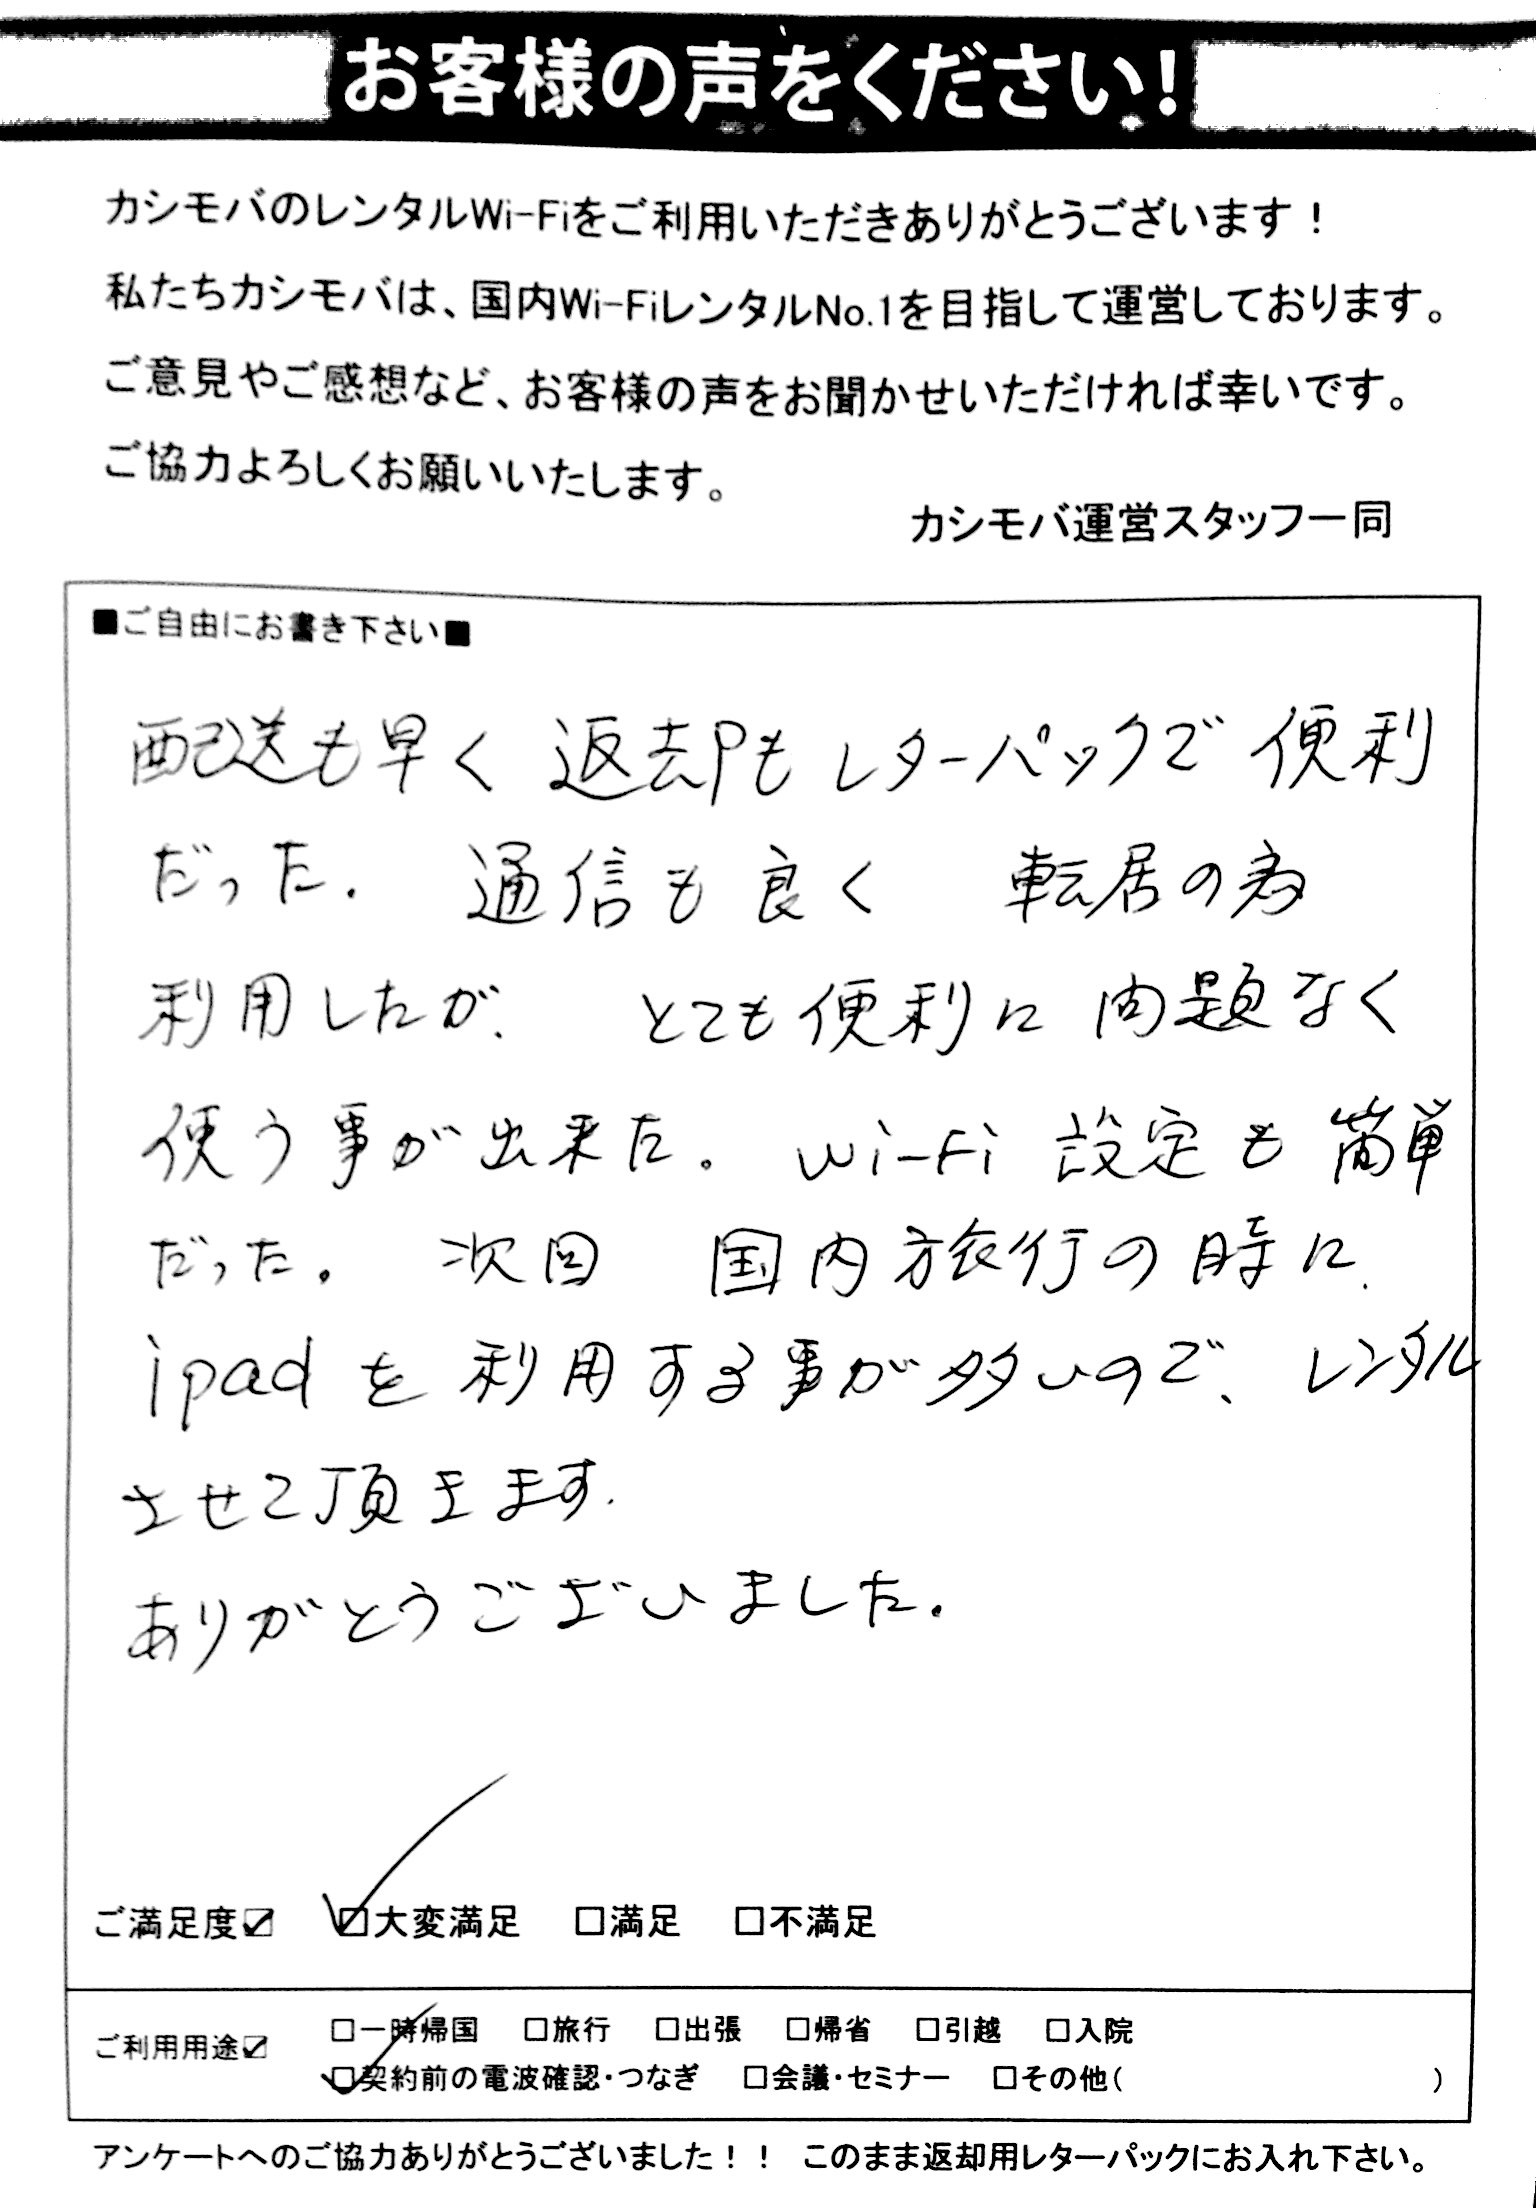 お客様の声をください!
カシモバのレンタルWi-Fiをご利用いただきありがとうございます！
私たちカシモバは、国内Wi-FiレンタルNo.1を目指して運営しております。
ご意見やご感想など、お客様の声をお聞かせいただければ幸いです。
ご協力よろしくお願いいたします。
カシモバ運営スタッフ一同
■ご自由にお書き下さい■
配送も早く 返却もレターパックで便利
だった. 通信も良く 転居の為
利用したが、 とても便利に問題なく
使う事が出来た。 Wi-Fi 設定も簡単
だった。 次回 国内旅行の時に、
ipadを利用する事が多いので、レンタル
させて頂きます.
ありがとうございました.
ご満足度☑ ☑大変満足 □満足 □不満足
ご利用用途☑ □一時帰国 □旅行 □出張 □帰省 □引越 □入院
☑契約前の電波確認・つなぎ □会議・セミナー □その他( )
アンケートへのご協力ありがとうございました！！ このまま返却用レターパックにお入れ下さい。